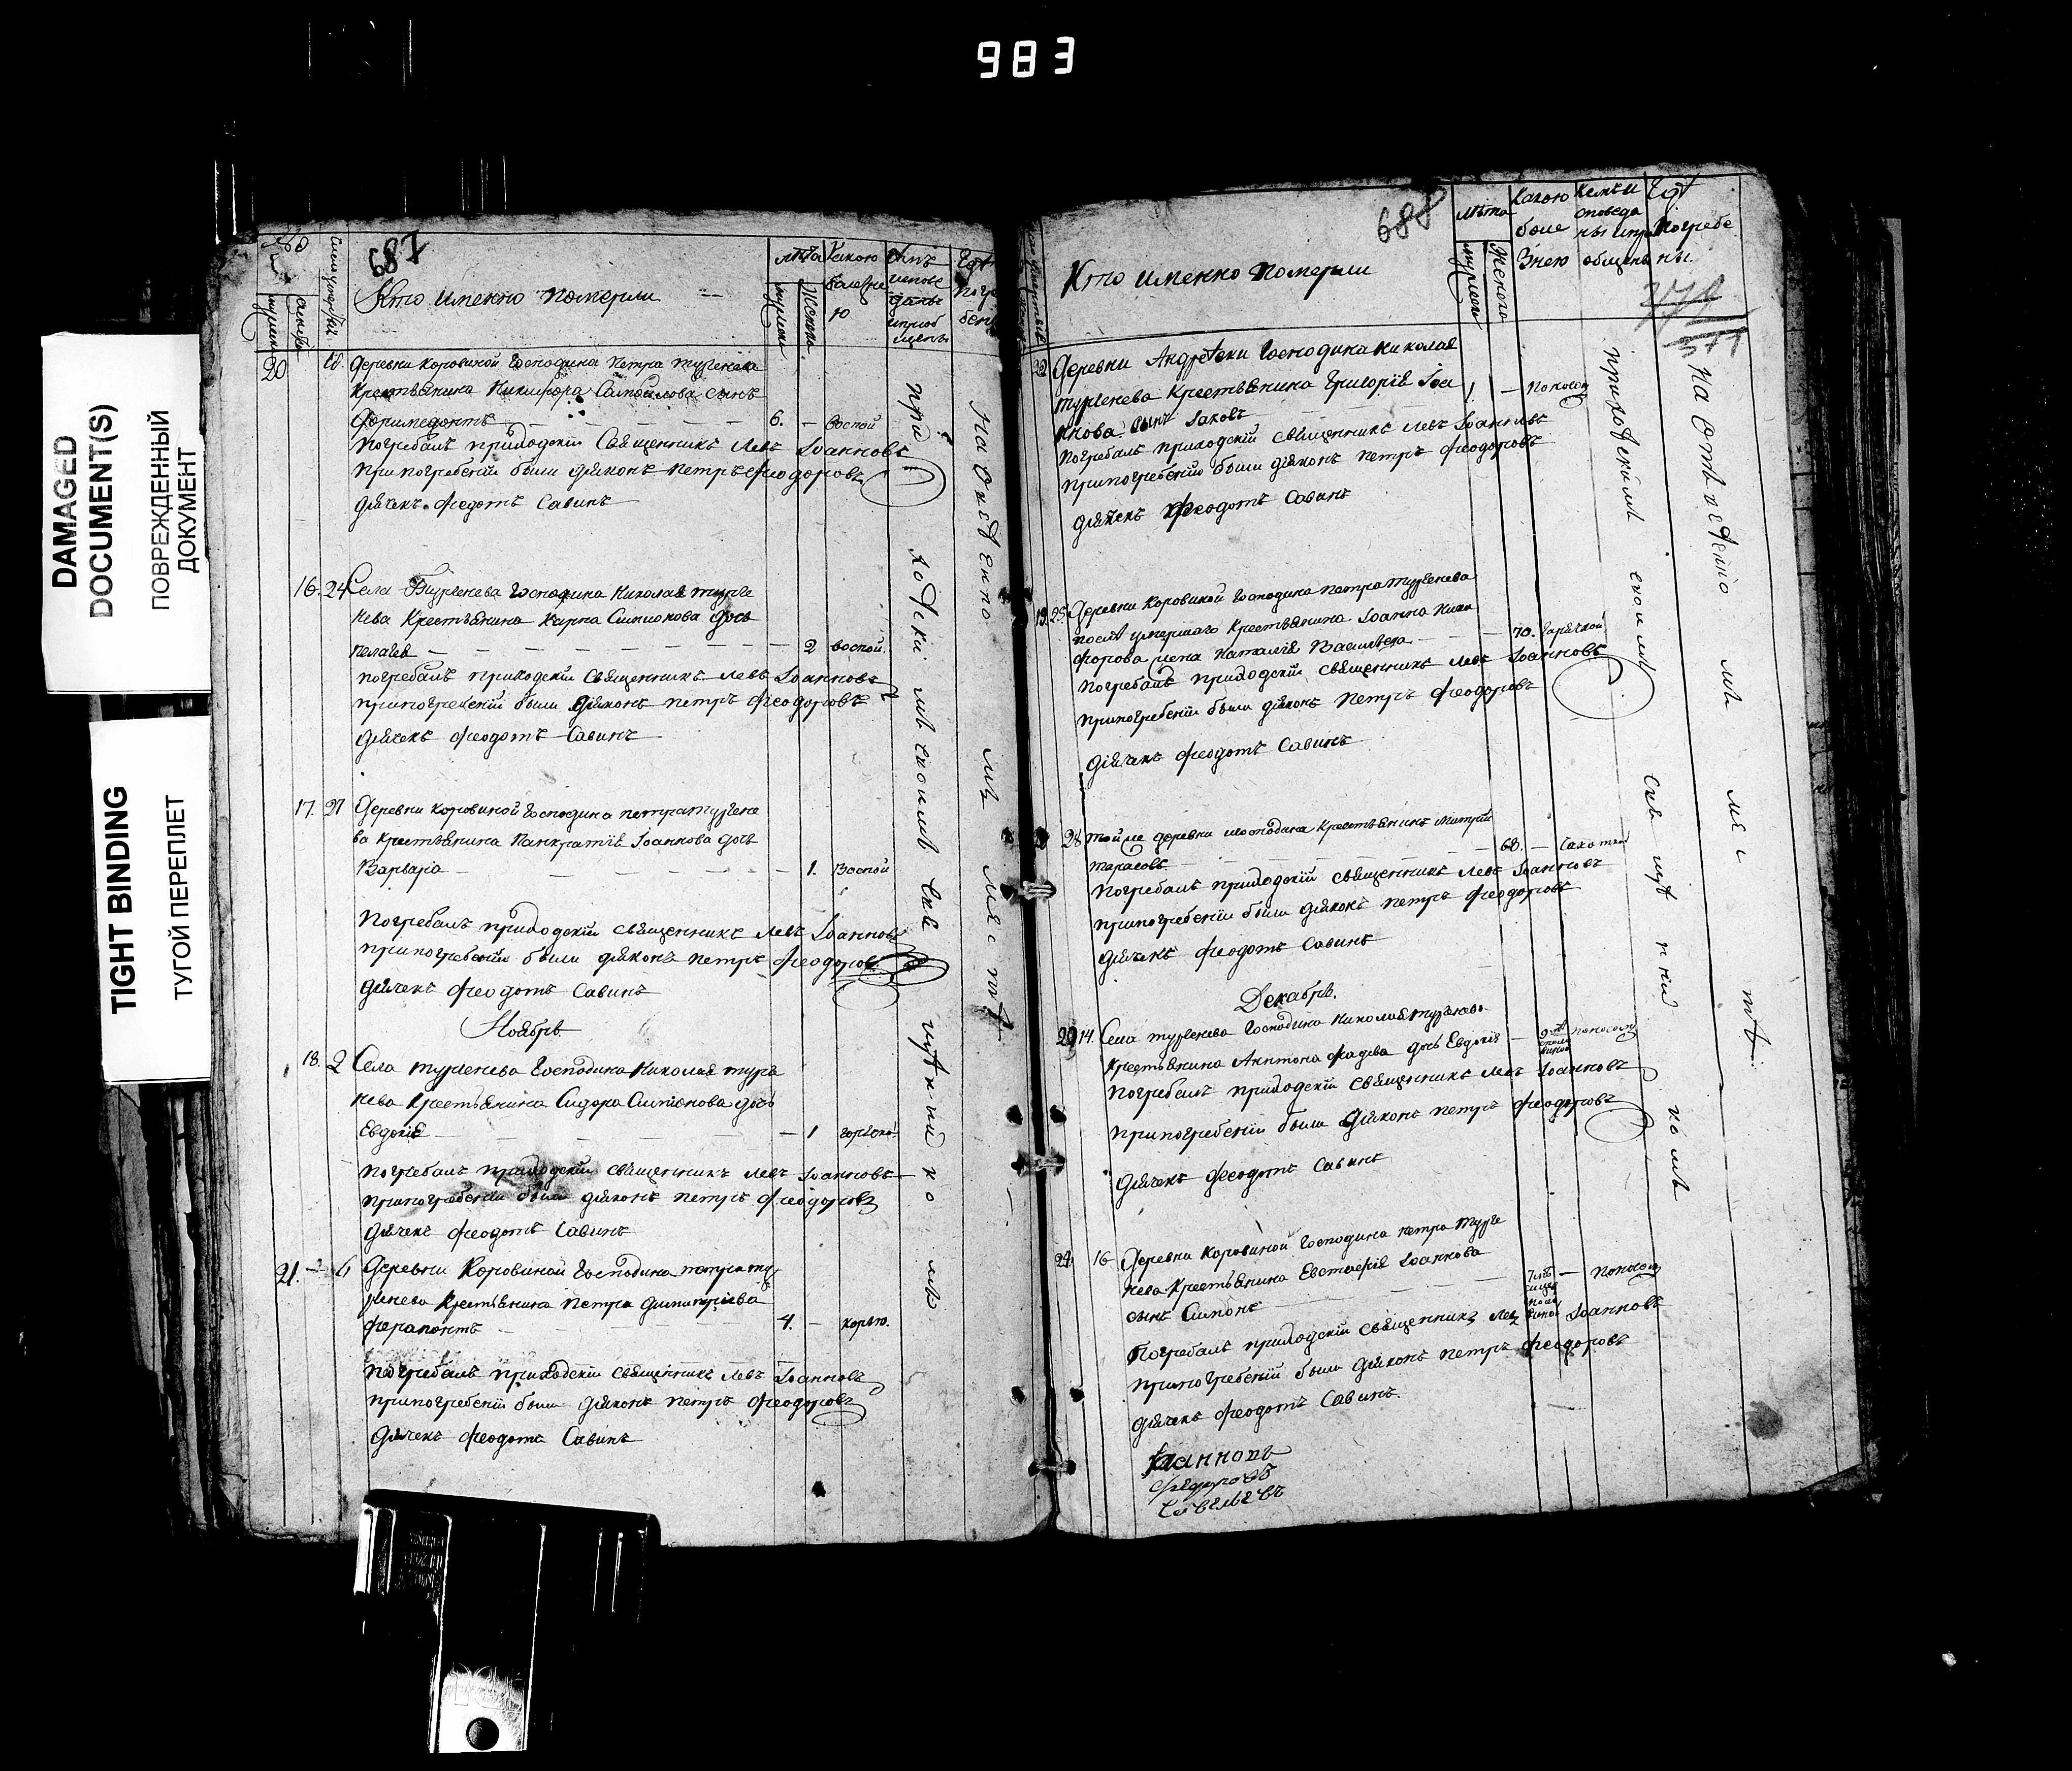 983
DAMAGED
DOCUMENT(S)
ПОВРЕЖДЕННЫЙ
ДОКУМЕНТ
TIGHT BINDING
ТУГОЙ ПЕРЕПЛЕТ
687
Кто именно померли
лѣта
20
Деревни Коровиной Господина Петра Тургенева
Крестьянина Никифора Самойлова сынъ
6. — воспой
Погребалъ приходскій Священникъ Левъ Іоанновъ
При погребеніи были діяконъ Петръ Феодоровъ
дьячекъ Феодотъ Савинъ
16. 24 Села Тургенева Господина Николая Турге
нева Крестьянина Карпа Симионова дочь
Пелагея — 2 воспой.
Погребалъ приходскій священникъ Левъ Іоанновъ
При погребеніи были діяконъ Петръ Феодоровъ
дьячекъ Феодотъ Савинъ
17. 27 Деревни Коровиной Господина Петра Тургене
ва Крестьянина Панкратія Іоаннова дочь
Варвара — 1. воспой
Погребалъ приходскій священникъ Левъ Іоанновъ
При погребеніи были діяконъ Петръ Феодоровъ
дьячекъ Феодотъ Савинъ
Ноябрь
18. 2 Села Тургенева Господина Николая Турге
нева Крестьянина Сидора Симионова дочь
Евдокія — 1
Погребалъ приходскій священникъ Левъ Іоанновъ
При погребеніи были діяконъ Петръ Феодоровъ
дьячекъ Феодотъ Савинъ
21. — 6 Деревни Коровиной Господина Петра Ту
ргенева Крестьянина Петра Димитріева
Ферапонтъ — 4. — корью.
Погребалъ приходскій священникъ Левъ Іоанновъ
При погребеніи были діяконъ Петръ Феодоровъ
дьячекъ Феодотъ Савинъ
приходскимъ своимъ священникомъ
мѣстѣ
688
Кто именно померли
лѣта
Какою боле знею
Кемъ исповеданы и приобщены
Где погребены.
371
Деревни Андреевки Господина Николая
Тургенева Крестьянина Григорія Іоа
ннова сынъ Іаковъ 1 — поносом
Погребалъ приходскій священникъ Левъ Іоанновъ
При погребеніи были діяконъ Петръ Феодоровъ
дьячекъ Феодотъ Савинъ
19. 25. Деревни Коровиной Господина Петра Тургенева
после умершаго Крестьянина Іоанна Ники
форова жена Наталія Васильева — 70. горячкой
Погребалъ приходскій священникъ Левъ Іоанновъ
При погребеніи были діяконъ Петръ Феодоровъ
дьячекъ Феодотъ Савинъ
28 Той же деревни и господина Крестьянинъ Митрій
Тарасовъ — 68. —
Погребалъ приходскій священникъ Левъ Іоанновъ
При погребеніи были діяконъ Петръ Феодоровъ
дьячекъ Феодотъ Савинъ
Декабрь.
20 14. Села Тургенева Господина Николая Тургенева
Крестьянина Антона Фадева дочь Евдокія — поносом
Погребалъ приходскій священникъ Левъ Іоанновъ
При погребеніи были діяконъ Петръ Феодоровъ
дьячекъ Феодотъ Савинъ
16 Деревни Коровиной Господина Петра Турге
нева Крестьянина Евстафія Іоаннова
сынъ Симонъ — поносом
Погребалъ приходскій священникъ Левъ Іоанновъ
При погребеніи были діяконъ Петръ Феодоровъ
дьячекъ Феодотъ Савинъ.
Іоанновъ
Федоровъ
приходскимъ своимъ священникомъ
На отведенномъ месте